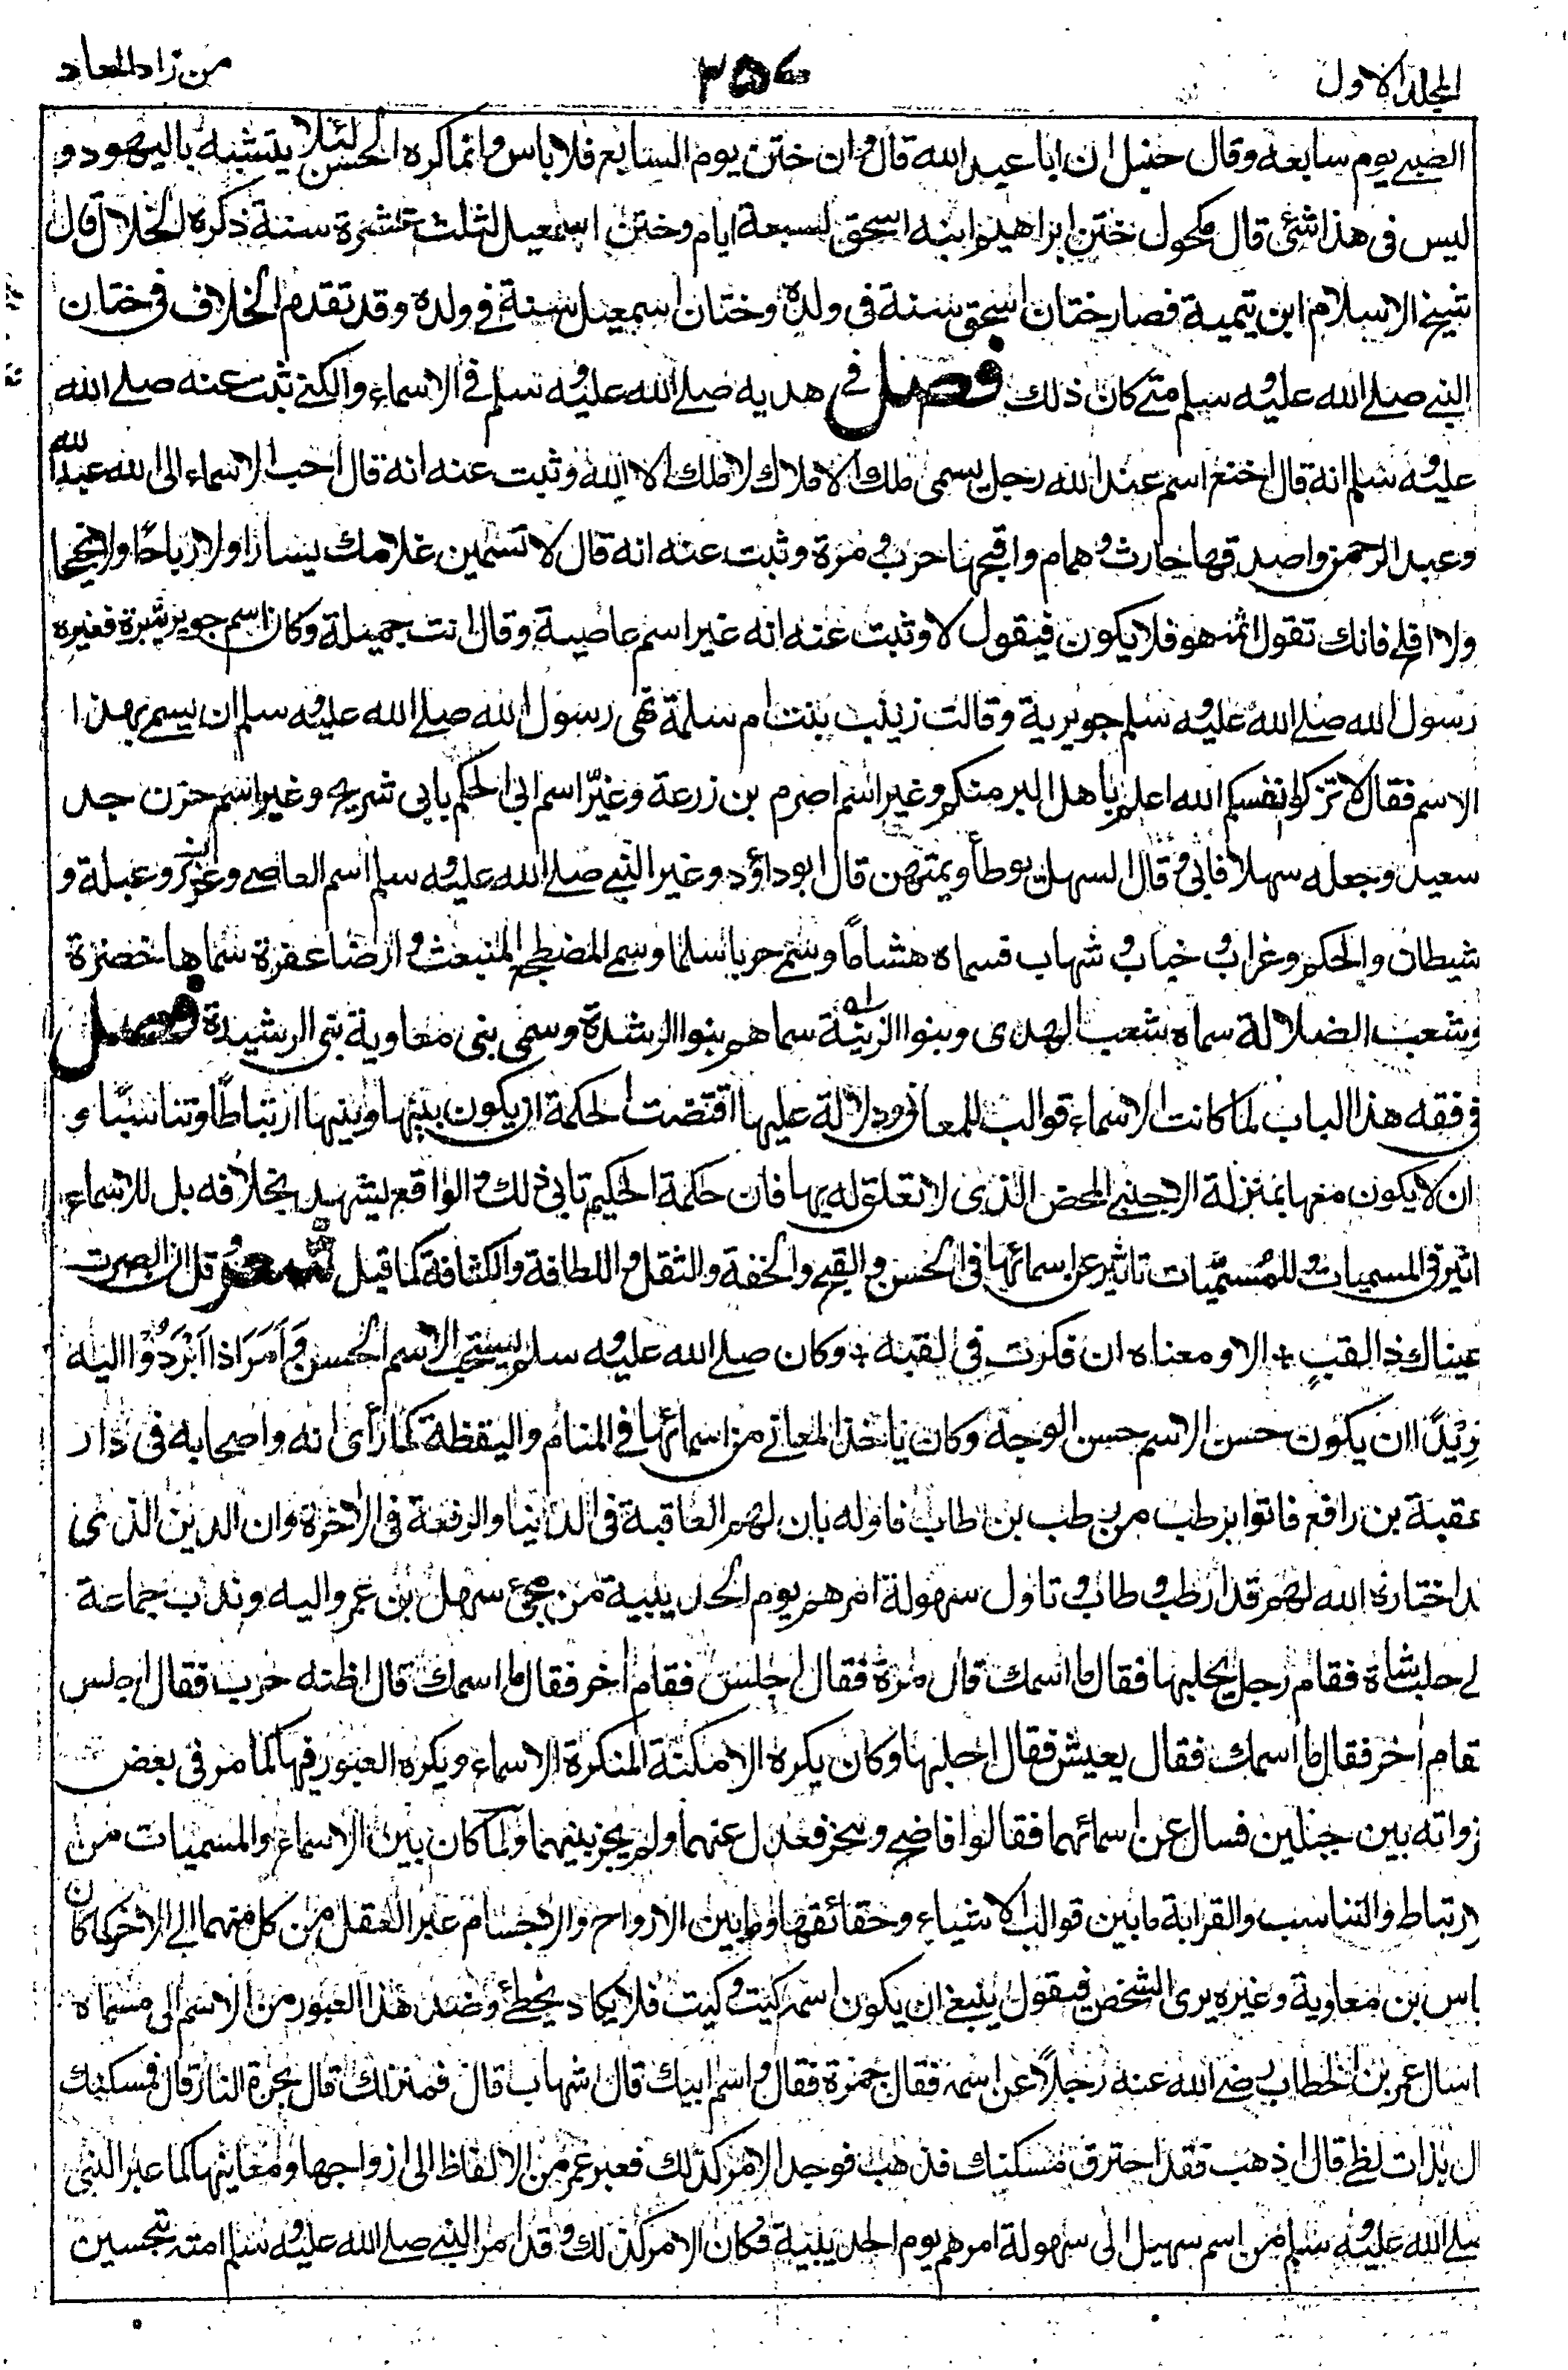 المجلد الاول
٣٥٤
من زاد المعاد
الصبي يوم سابعه وقال حنبل ان ابا عبد الله قال وان ختن يوم السابع فلا باس وانما كره الحسن لئلا يتشبه باليهود و
ليس فى هذا شئ قال مكحول ختن ابراهيم ابنه اسحق لسبعة ايام وختن اسمعيل لثلث عشرة سنة ذكره الخلال قال
شيخ الاسلام ابن تيمية فصار ختان اسحق سنة فى ولده وختان اسمعيل سنة في ولده وقد تقدم الخلاف فى ختان
النبي صلے الله عليه وسلم متے كان ذلك فصل في هديه صلے الله عليه وسلم في الاسماء والكنے ثبت عنه صلے الله
عليه وسلم انه قال اخنع اسم عند الله رجل يسمى ملك الاملاك لا ملك الا الله وثبت عنه انه قال احب الاسماء الى الله عبد الله
وعبد الرحمن واصدقها حارث وهمام واقبحها حرب ومرة وثبت عنه انه قال لا تسمين غلامك يسارا ولا رباحًا ولا نجيحا
ولا افلح فانك تقول اثم هو فلا يكون فيقول لا وثبت عنه انه غير اسم عاصية وقال انت جميلة وكان اسم جويرية برة فغيره
رسول الله صلے الله عليه وسلم جويرية وقالت زينب بنت ام سلمة نهى رسول الله صلے الله عليه وسلم ان يسمے بهذا
الاسم فقال لا تزكوا انفسكم الله اعلم باهل البر منكم وغير اسم اصرم بن زرعة وغيّر اسم ابى الحكم بابى شريح وغير اسم حزن جد
سعيد وجعله سهلا فابى وقال السهل يوطأ ويمتهن قال ابو داؤد وغير النبي صلے الله عليه وسلم اسم العاصے وعزيز وعبلة و
شيطان والحكم وغراب وخباب وشهاب فسماه هشامًا وسمے حربا سلما وسمے المضطجع المنبعث وارضا عفرة سماها خضرة
وشعب الضلالة سماه شعب الهدى وبنوا الزنية سماهم بنوا الرشدة وسمى بنى معاوية بنى الرشيدة فصل
في فقه هذا الباب لما كانت الاسماء قوالب للمعانى ودلالة عليها اقتضت الحكمة ان يكون بينها وبينها ارتباطًا وتناسبًا و
ان لا يكون معها بمنزلة الاجنبي المحض الذى لا تعلق له بها فان حكمة الحكيم تابى ذلك والواقع يشهد بخلافه بل للاسماء
اثير فى المسميات وللمُسمَّيات تاثير عن اسمائها فى الحسن والقبح والخفة والثقل واللطافة والكثافة كما قيل شعر قل ان ابصرت
عيناك ذا لقبٍ + الا ومعناه ان فكرت فى لقبه + وكان صلے الله عليه وسلم يستحب الاسم الحسن وَاَمَرَ اذا اَبْرَدُوْا اليه
بَرِيْدًا ان يكون حسن الاسم حسن الوجه وكان ياخذ المعانے من اسمائها في المنام واليقظة كما رأى انه واصحابه فى دار
عقبة بن رافع فاتوا برطب من رطب بن طاب فاوله بان لهم العاقبة فى الدنيا والرفعة فى الاخرة وان الدين الذى
د اختاره الله لهم قد ارطب وطاب وتاول سهولة امرهم يوم الحديبية من مجئ سهل بن عمرو اليه وندب جماعة
لے حلب شاة فقام رجل يحلبها فقال ما اسمك قال مرة فقال اجلس فقام اخر فقال ما اسمك قال اظنه حرب فقال اجلس
فقام اخر فقال ما اسمك فقال يعيش فقال احلبها وكان يكره الامكنة المنكرة الاسماء ويكره العبور فيها كما مر فى بعض
زواته بين جبلين فسال عن اسمائهما فقالوا فاضح ومخز فعدل عنهما ولم يجز بينهما ولما كان بين الاسماء والمسميات من
لارتباط والتناسب والقرابة ما بين قوالب الاشياء وحقائقها وما بين الارواح والاجسام عبر العقل من كل منهما الے الاخر كما كان
ياس بن معاوية وغيره يرى الشخص فيقول ينبغے ان يكون اسمه كيت وكيت فلا يكاد يخطئ وضد هذا العبور من الاسم الى مسماه
اسال عمر بن الخطاب رضے الله عنه رجلًا عن اسمه فقال جمرة فقال واسم ابيك قال شهاب قال فمنزلك قال بحرة النار قال فمسكنك
ال بذات لظے قال اذهب فقد احترق مسكنك فذهب فوجد الامر كذلك فعبر عمر من الالفاظ الى ازواجها ومعانيها كما عبر النبى
صلے الله عليه وسلم من اسم سهيل الى سهولة امرهم يوم الحديبية فكان الامر كذلك وقد امر النبے صلے الله عليه وسلم امته بتحسين